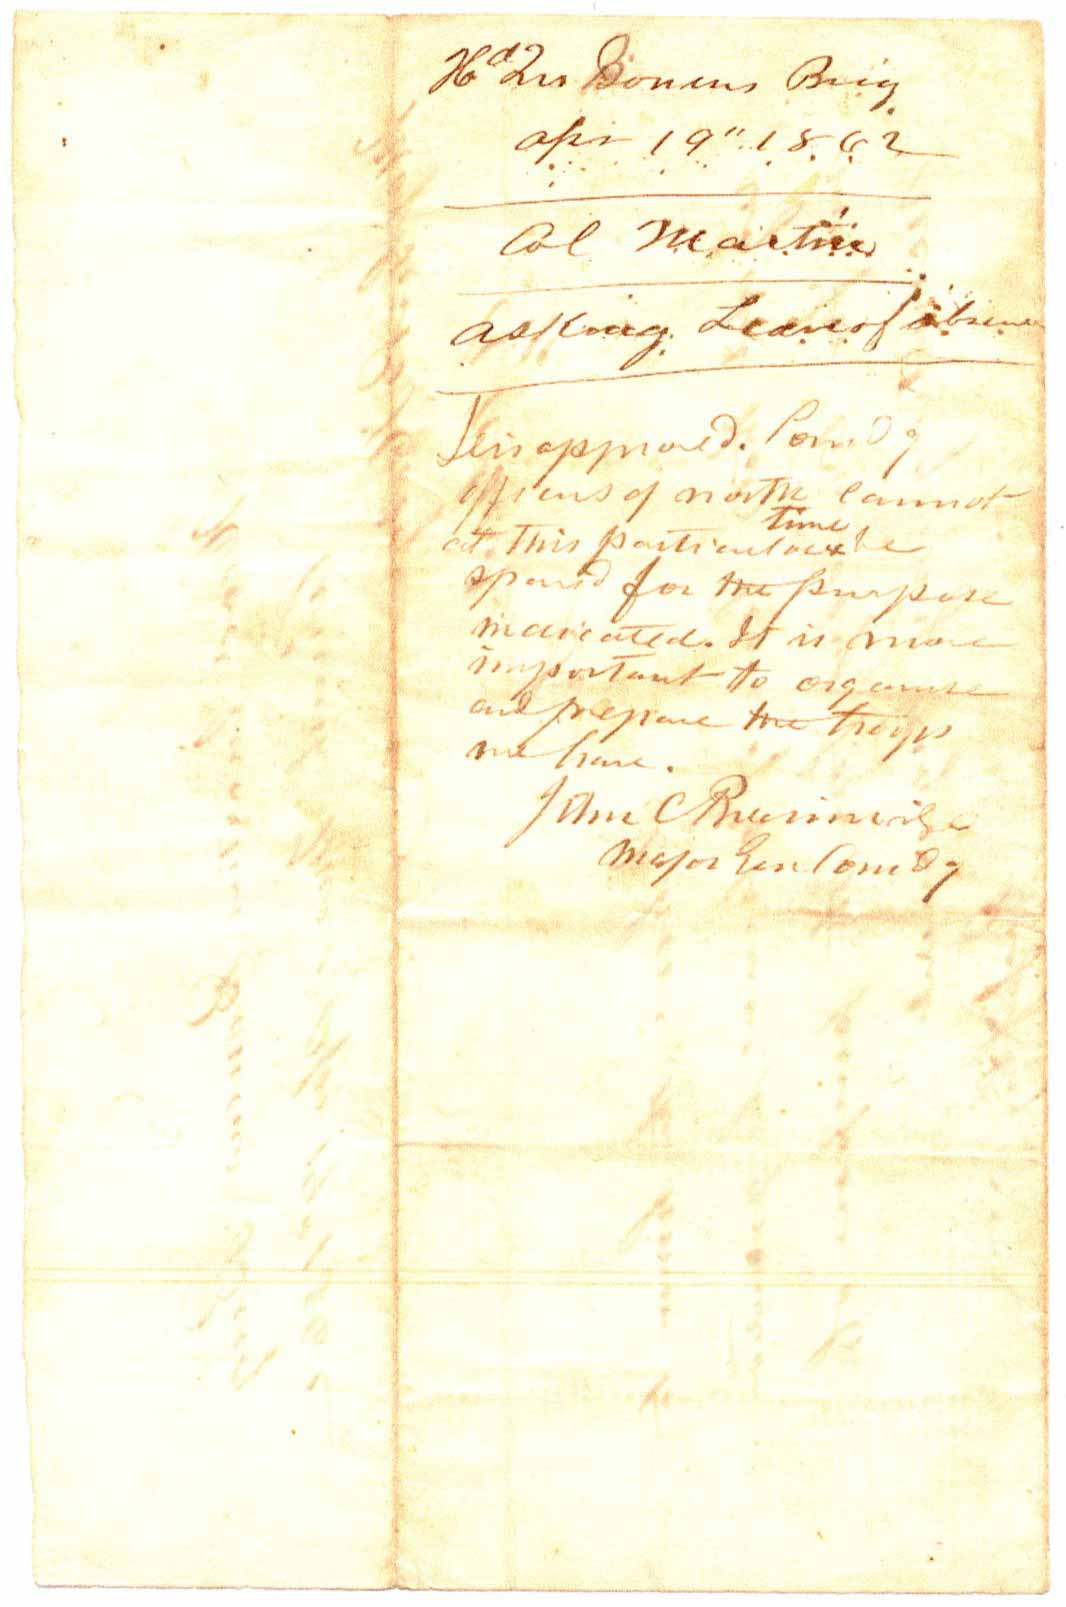 Hd Qrs Bowens Brig
Apr 19" 1862
Col Martin
asking Leave of absence
Disapproved. Comdg
officers of worth cannot
at this particular time be
spared for the purpose
indicated. It is more
important to organise
and prepare the troops
we have.
John C Breckinridge
Major Gen Comdg